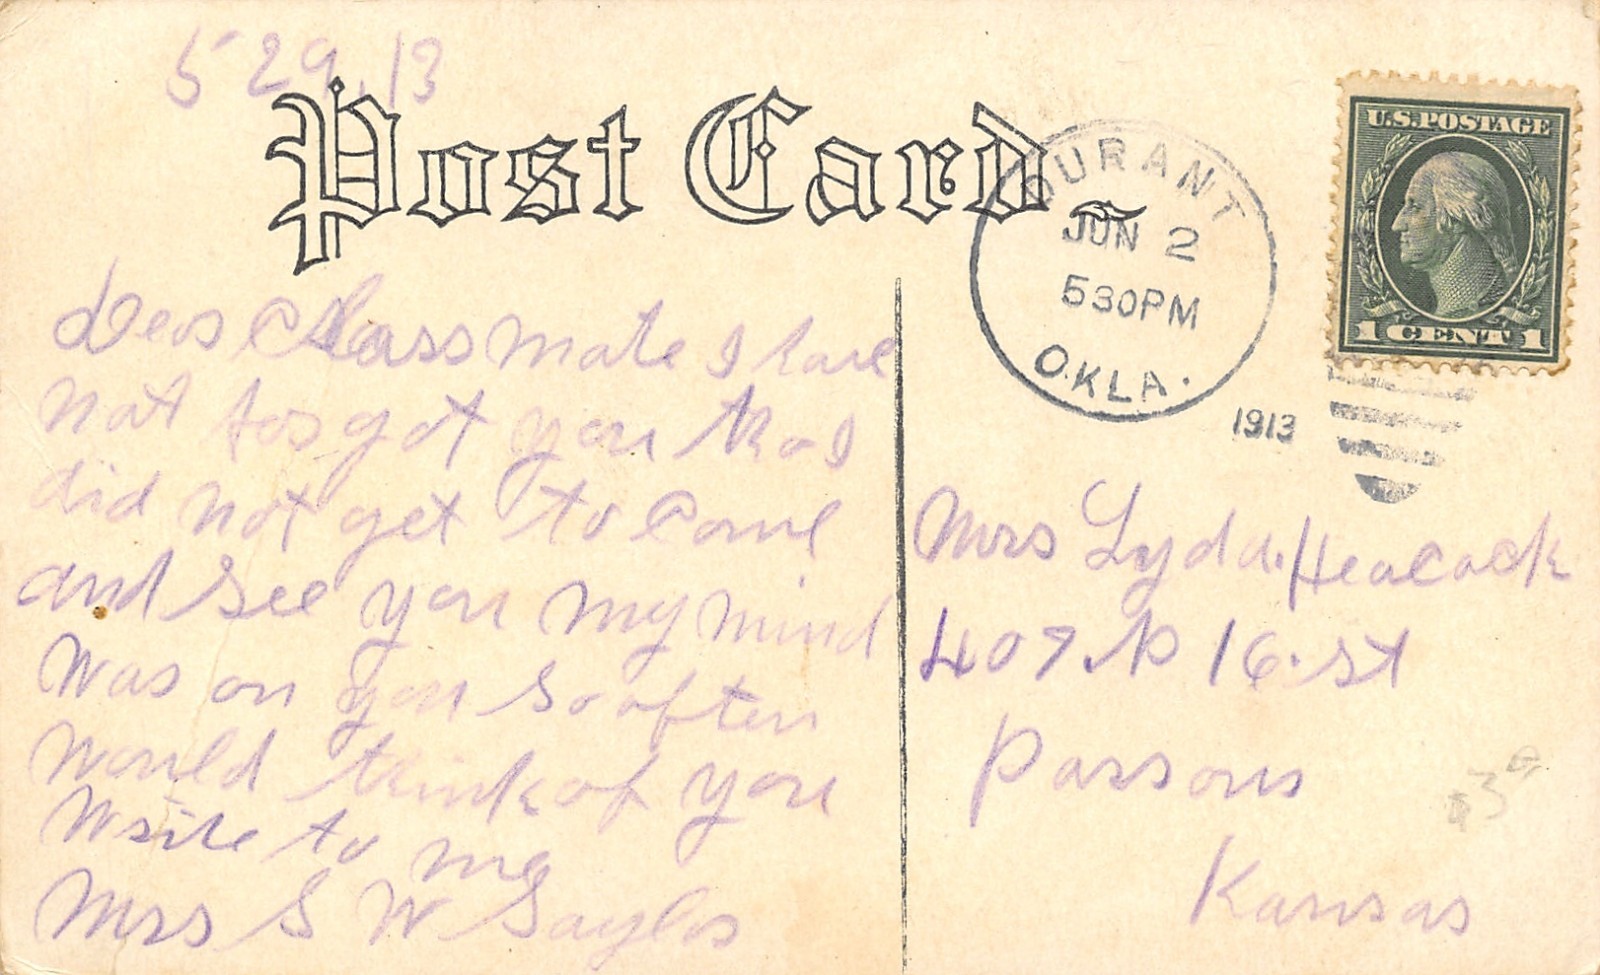 5 29.13
Post Card
DURANT
JUN 2
530PM
OKLA.
1913
U.S. POSTAGE
1 CENT 1
Dear Classmate I have
not forgot you tho I
did not get to Come
and see you my mind
was on you so often
would think of you
Write to me
Mrs S W Saylor
Mrs Lyda. Heacock
407. N 16. St
Parsons
Kansas